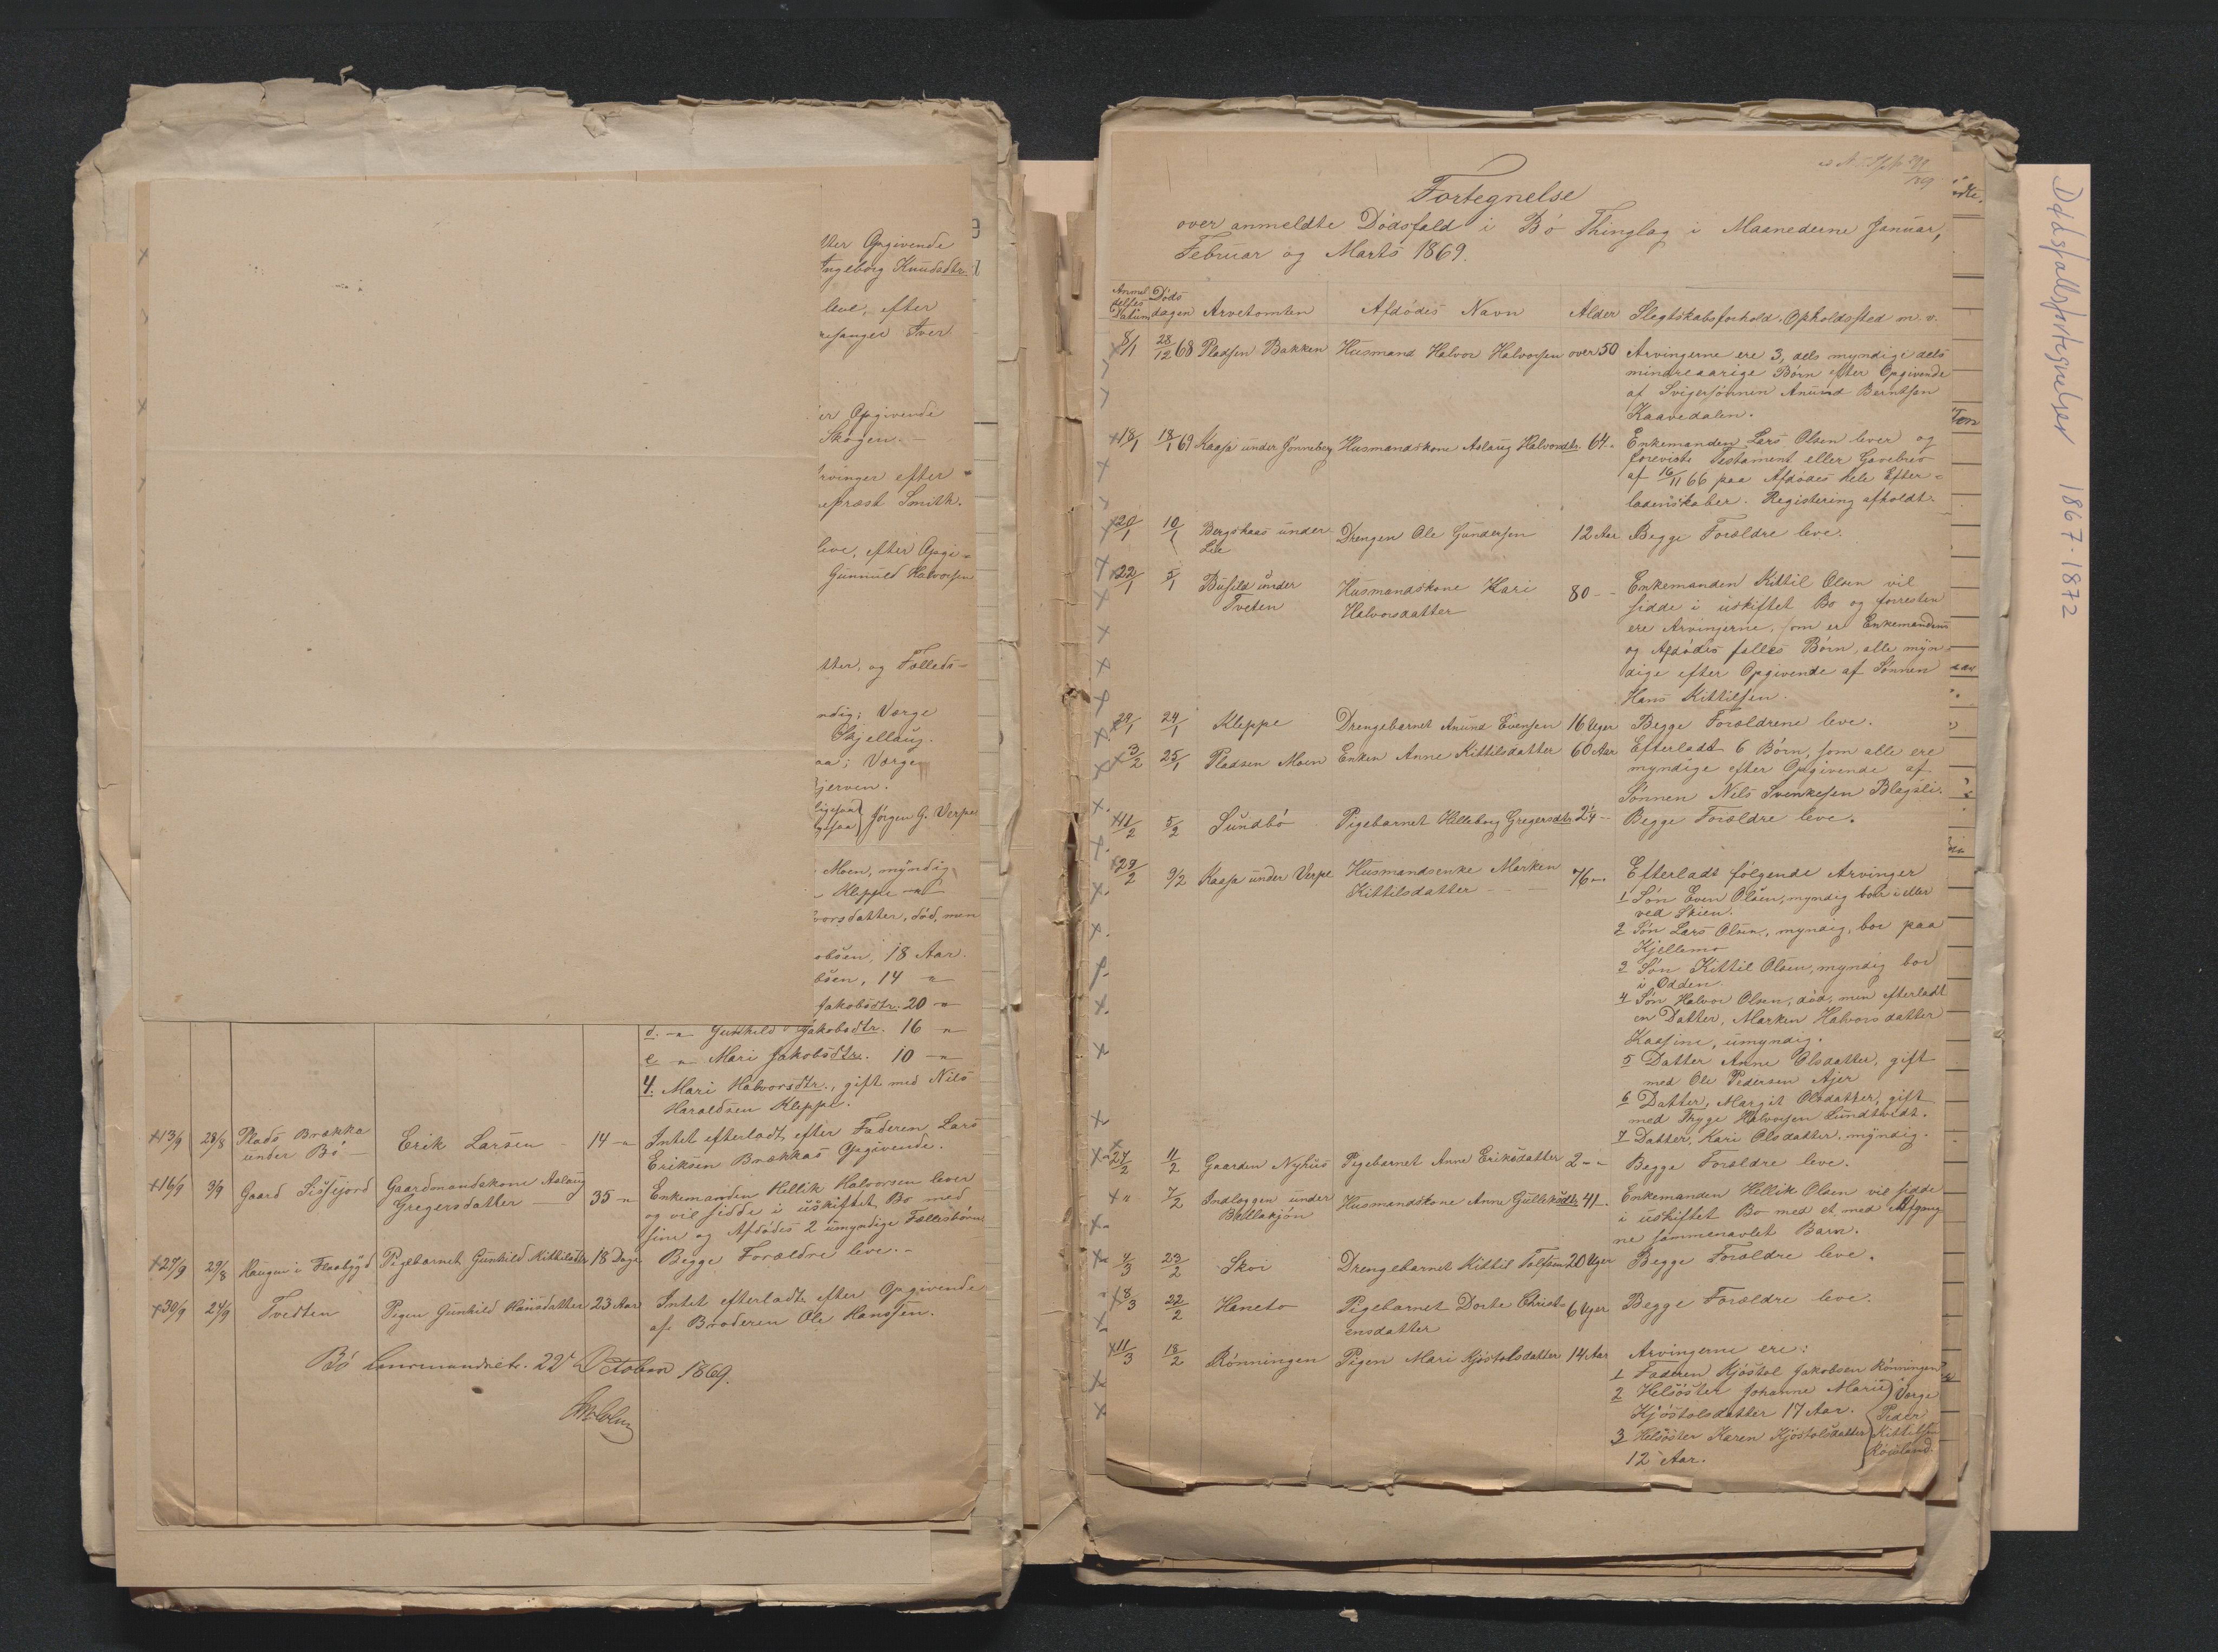 ter Opgivende
Ingeborg Knudsdtr.
leve, efter
Iver
er Opgivende
Skogen.
rvinger efter
præst Smith.
leve, efter Opgi-
Gunnuld Halvorsen
tter, og Fælleds-
ndig; Værge
Skjellaug.
aa; Værge
jerven.
Jörgen G. Verpe
Moen, myndig
Kleppe
vorsdatter, död, men
obsen, 18 Aar.
bsen, 14 -"-
Jakobsdtr. 20 -"-
d. -"- Gunhild Jakobsdtr. 16 -"-
e -"- Mari Jakobsdtr. 10 -"-
4. Mari Halvorsdtr., gift med Nils
Haraldsen Kleppe.
+13/9 28/8 Plads Brække under Bö Erik Larsen 14 -"- Intet efterladt, efter Faderen Lars
Eriksen Brækkas Opgivende.
+16/9 3/9 Gaard Gaardmandskone Aslaug Gregersdatter 35 -"- Enkemanden Hellik Halvorsen lever
og vil sidde i uskiftet Bo med
sine og Afdödes 2 umyndige Fællesbörn
+27/9 29/8 Haugen i Flaabygd Pigebarnet Gunhild Kittilsdtr 18 Dage Begge Forældre leve.
+30/9 24/9 Tvedten Pigen Gunhild Hansdatter 23 Aar Intet efterladt efter Opgivende
af Broderen Ole Hansen.
Bö Lensmandsetr. 22d October 1869.
Fortegnelse
over anmeldte Dödsfald i Bö Thinglag i Maanederne Januar,
Februar og Marts 1869.
Anmeldelses Datum Döds dagen Arvetomten Afdödes Navn Alder Slegtskabsforhold. Opholdssted m. v.
8/1 28/12 68 Pladsen Bakken Husmand Halvor Halvorsen over 50 Arvingerne ere 3, dels myndige dels
mindreaarige Börn efter Opgivende
af Svigersönnen Anund Berntsen
Kaavedalen.
+18/1 18/1 69 Kaasa under Jönneberg Husmandskone Aslaug Halvorsdtr. 64 - Enkemanden Lars Olsen lever og
foreviste Testament eller Gavebrev
af 16/11 66 paa Afdödes hele Efter-
ladenskaber. Registering afholdt.
+20/1 10/1 Bergskaas under Lie Drengen Ole Gundersen 12 Aar Begge Forældre leve.
+22/1 5/1 Bufild under Tveten Husmandskone Kari Halvorsdatter 80 - - Enkemanden Kittil Olsen vil
sidde i uskiftet Bo og forresten
ere Arvingerne, som er Enkemandens
og Afdödes fælles Börn, alle myn-
dige efter Opgivende af Sönnen
Hans Kittilsen.
29/1 24/1 Kleppe Drengebarnet Anund Evensen 16 Uger Begge Forældrene leve.
+3/2 25/1 Pladsen Moen Enken Anne Kittilsdatter 60 Aar Efterladt 6 Börn, som alle ere
myndige efter Opgivende af
Sönnen Nils Svenkesen Blegsli.
+11/2 5/2 Sundbö Pigebarnet Hilleborg Gregersdtr 2¼ - Begge Forældre leve.
+29/2 9/2 Kaasa under Verpe Husmandsenke Marken Kittilsdatter 76 - Efterladt fölgende Arvinger
1 Sön Even Olsen, myndig boer i eller
ved Skien.
2 Sön Lars Olsen, myndig, bor paa
Kjellemo
3 Sön Kittil Olsen, myndig bor
i Odden.
4 Sön Halvor Olsen, död, men efterladt
en Datter, Marken Halvorsdatter
Kaasene, umyndig.
5 Datter Anne Olsdatter, gift
med Ole Pedersen Ajer
6 Datter, Margit Olsdatter, gift
med Trygge Halvorsen
7 Datter, Kari Olsdatter, myndig.
27/2 11/2 Gaarden Nyhus Pigebarnet Anne Eriksdatter 2 - - Begge Forældre leve.
+ " 7/2 Indlæggen under Husmandskone Anne Gulleksdtr. 41 - Enkemanden Hellik Olsen vil sidde
i uskiftet Bo med et med Afgang
ne sammenavlet Barn.
4/3 23/2 Skoi Drengebarnet Kittil Tolfsen 20 Uger Begge Forældre leve.
+8/3 22/2 Haneto Pigebarnet Dorte Christ-ensdatter 6 Uger Begge Forældre leve.
+11/3 18/2 Rönningen Pigen Mari Kjöstolsdatter 14 Aar Arvingerne ere:
1 Faderen Kjöstol Jakobsen Rönningen
2 Helsöster Johanne Marie
Kjöstolsdatter 17 Aar.
3 Helsöster Karen Kjöstolsdatter
12 Aar.
Værge
Peder
Kittilsen
Dødsfallsfortegnelser 1867-1872